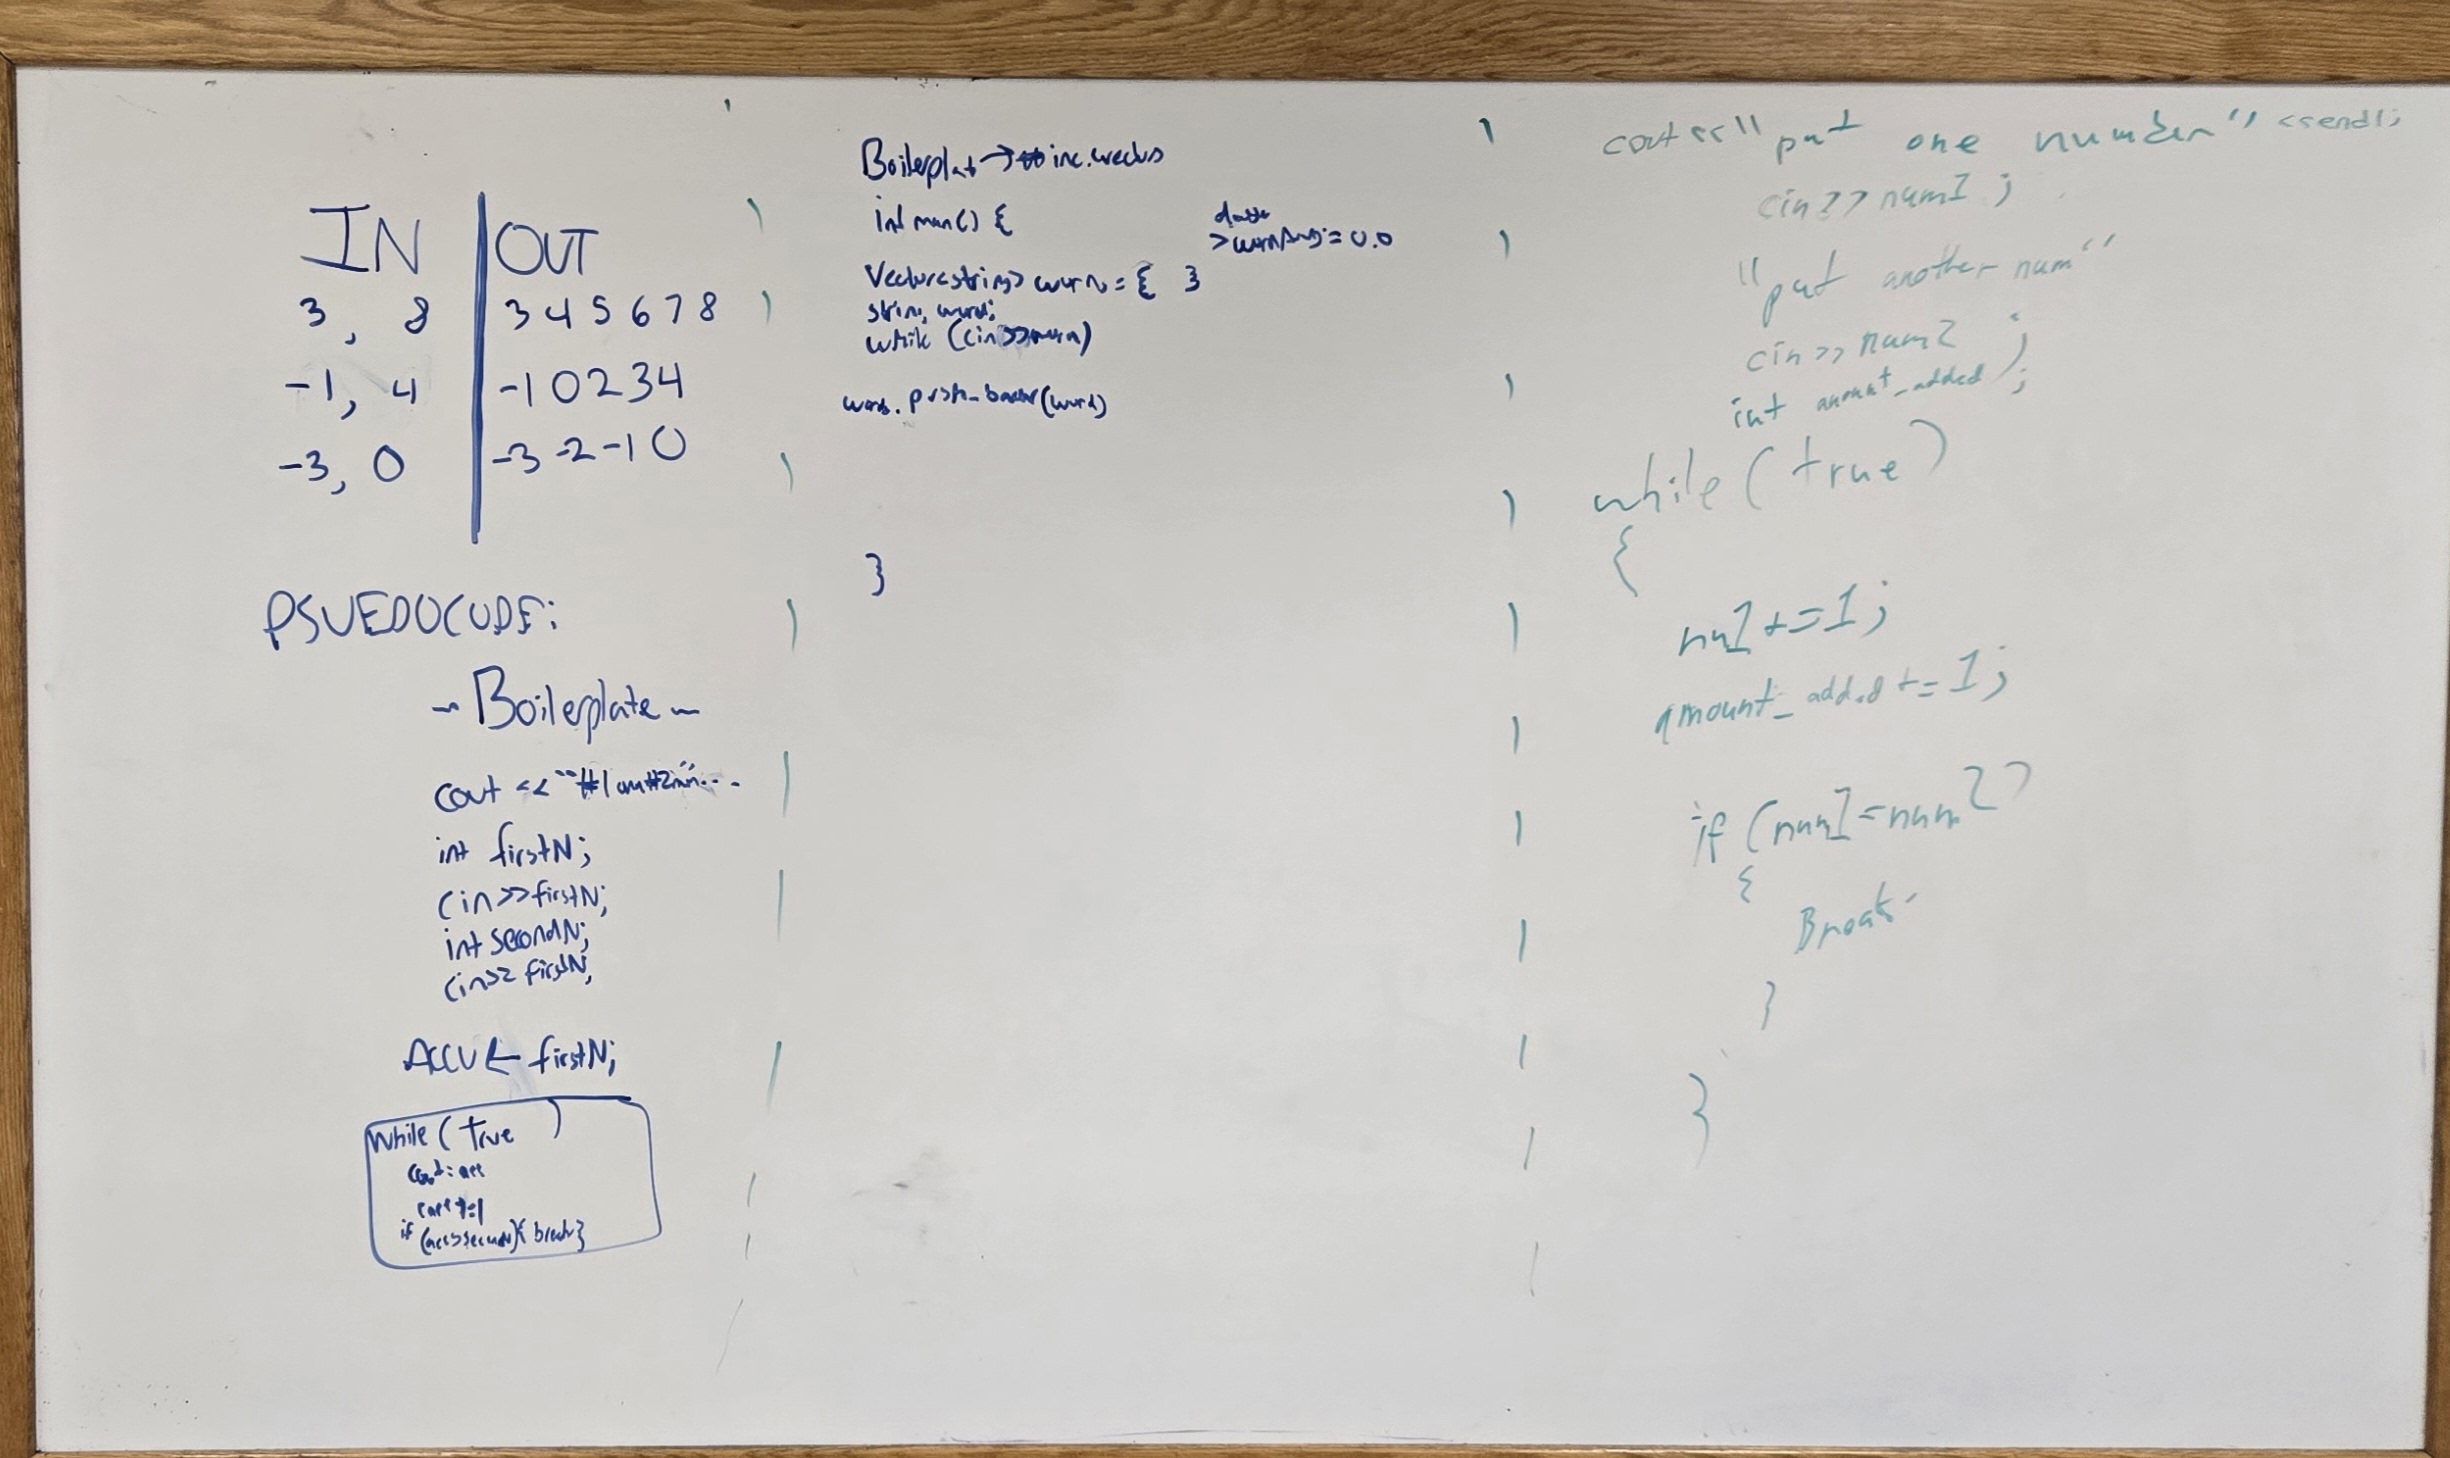 IN | OUT
3, 8 | 3 4 5 6 7 8
-1, 4 | -1 0 2 3 4
-3, 0 | -3 -2 -1 0
PSUEDOCODE:
- Boilerplate -
cout << "#1 #2
int firstN;
cin>>firstN;
int secondN;
cin>> firstN;
ACCU ← firstN;
while (true )
cout: acc
+=1
if (acc>second){ break}
Boilerplat → inc.
int main() {
Vector<string> = { }
= 0.0
string word;
while (cin>> )
push_back(word)
}
cout <<" put one number" <<endl;
cin >> num1 ;
"put another num"
cin >> num2 ;
int amount_added ;
while (true)
{
nu1 +=1;
amount_added +=1;
if (num1=num2)
{
Break
}
}